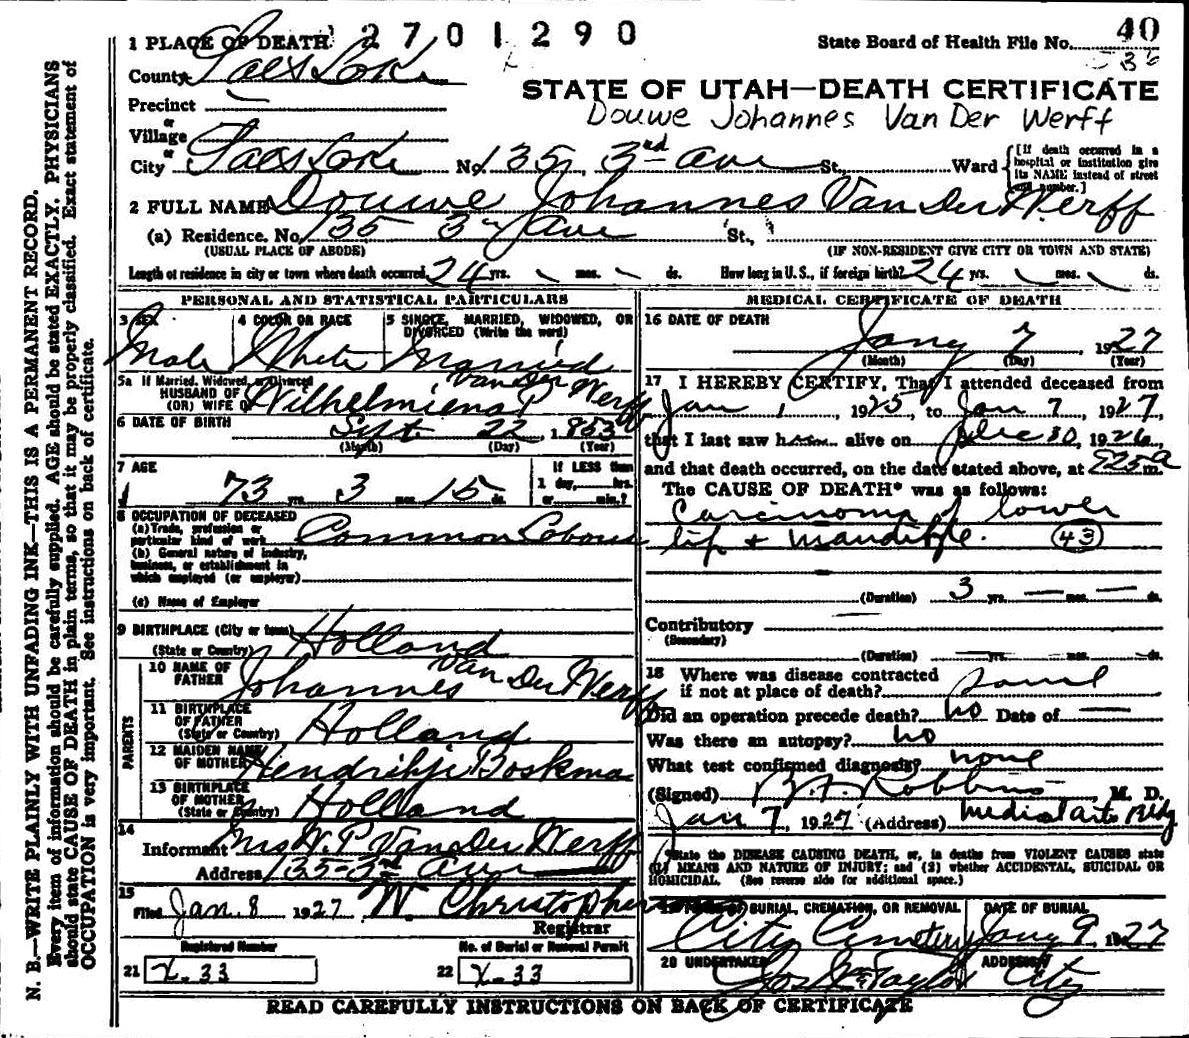 2701290
1 PLACE OF DEATH
State Board of Health File No. 40
36
County Salt Lake
STATE OF UTAH—DEATH CERTIFICATE
Precinct
Douwe Johannes Van Der Werff
or
Village
or
City Salt Lake No. 135, 3rd ave St., Ward
[If death occurred in a hospital or institution give its NAME instead of street and number.]
2 FULL NAME Douwe Johannes Van Der Werff
(a) Residence. No. 135 3rd Ave St.,
(USUAL PLACE OF ABODE) (IF NON-RESIDENT GIVE CITY OR TOWN AND STATE)
Length of residence in city or town where death occurred 24 yrs. mos. ds. How long in U. S., if foreign birth? 24 yrs. mos. ds.
PERSONAL AND STATISTICAL PARTICULARS
3 SEX 4 COLOR OR RACE 5 SINGLE, MARRIED, WIDOWED, OR DIVORCED (Write the word)
Male White Married
5a If Married, Widowed, or Divorced
HUSBAND OF
(OR) WIFE OF Wilhelmiena P. Van Der Werff
6 DATE OF BIRTH Sept. 22 1853
(Month) (Day) (Year)
7 AGE
73 yrs. 3 mos. 15 ds.
If LESS than
1 day, hrs.
or min.?
8 OCCUPATION OF DECEASED
(a) Trade, profession or
particular kind of work Common Labour
(b) General nature of industry,
business, or establishment in
which employed (or employer)
(c) Name of Employer
9 BIRTHPLACE (City or town)
(State or Country) Holland
PARENTS
10 NAME OF
FATHER Johannes Van Der Werff
11 BIRTHPLACE
OF FATHER
(State or Country) Holland
12 MAIDEN NAME
OF MOTHER Hendrikje Boskma
13 BIRTHPLACE
OF MOTHER
(State or Country) Holland
14
Informant Mrs W. P. Van der Werff
Address 135-3rd Ave
15
Filed Jan. 8 1927 W. Christopherson
Registrar
Registered Number No. of Burial or Removal Permit
21 X-33 22 X-33
MEDICAL CERTIFICATE OF DEATH
16 DATE OF DEATH
Jany 7, 1927
(Month) (Day) (Year)
17 I HEREBY CERTIFY, That I attended deceased from
Jan 1, 1925, to Jan 7, 1927,
that I last saw him alive on Dec 30, 1926,
and that death occurred, on the date stated above, at 825a m.
The CAUSE OF DEATH* was as follows:
Carcinoma of lower
lip + mandible. 43
(Duration) 3 yrs. — mos. — ds.
Contributory —
(Secondary)
(Duration) yrs. mos. ds.
18 Where was disease contracted
if not at place of death?
Did an operation precede death? no Date of —
Was there an autopsy? no
What test confirmed diagnosis? none
(Signed) Robbins M. D.
Jan 7, 1927 (Address) Medical arts Bldg
*State the DISEASE CAUSING DEATH, or, in deaths from VIOLENT CAUSES state
(1) MEANS AND NATURE OF INJURY; and (2) whether ACCIDENTAL, SUICIDAL OR
HOMICIDAL. (See reverse side for additional space.)
19 PLACE OF BURIAL, CREMATION, OR REMOVAL DATE OF BURIAL
City Cemetery Jany 9, 1927
20 UNDERTAKER ADDRESS
Jos. E. Taylor City
READ CAREFULLY INSTRUCTIONS ON BACK OF CERTIFICATE
N. B.—WRITE PLAINLY WITH UNFADING INK—THIS IS A PERMANENT RECORD.
Every item of information should be carefully supplied. AGE should be stated EXACTLY. PHYSICIANS
should state CAUSE OF DEATH in plain terms, so that it may be properly classified. Exact statement of
OCCUPATION is very important. See instructions on back of certificate.